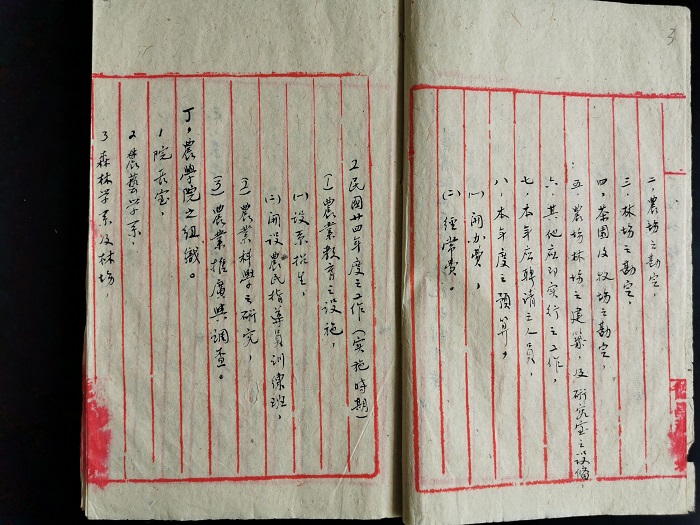 3
二，農场之勘定，
三．林场之勘定，
四．茶園及牧场之勘定，
五．農场林场之建築，及研究室之设備
六．其他应即实行之工作，
七．本年应聘请之人员，
八．本年度之预算，
㈠ 開办費，
㈡ 經常費。
2民國廿四年度之工作（实施时期）
⑴農業教育之设施，
㈠设系招生，
㈡開设農民指導員训练班，
⑵農業科學之研究，
⑶農業推廣與調查。
丁，農學院之組織。
1 院長室，
2 農藝学系．
3 森林学系及林场，